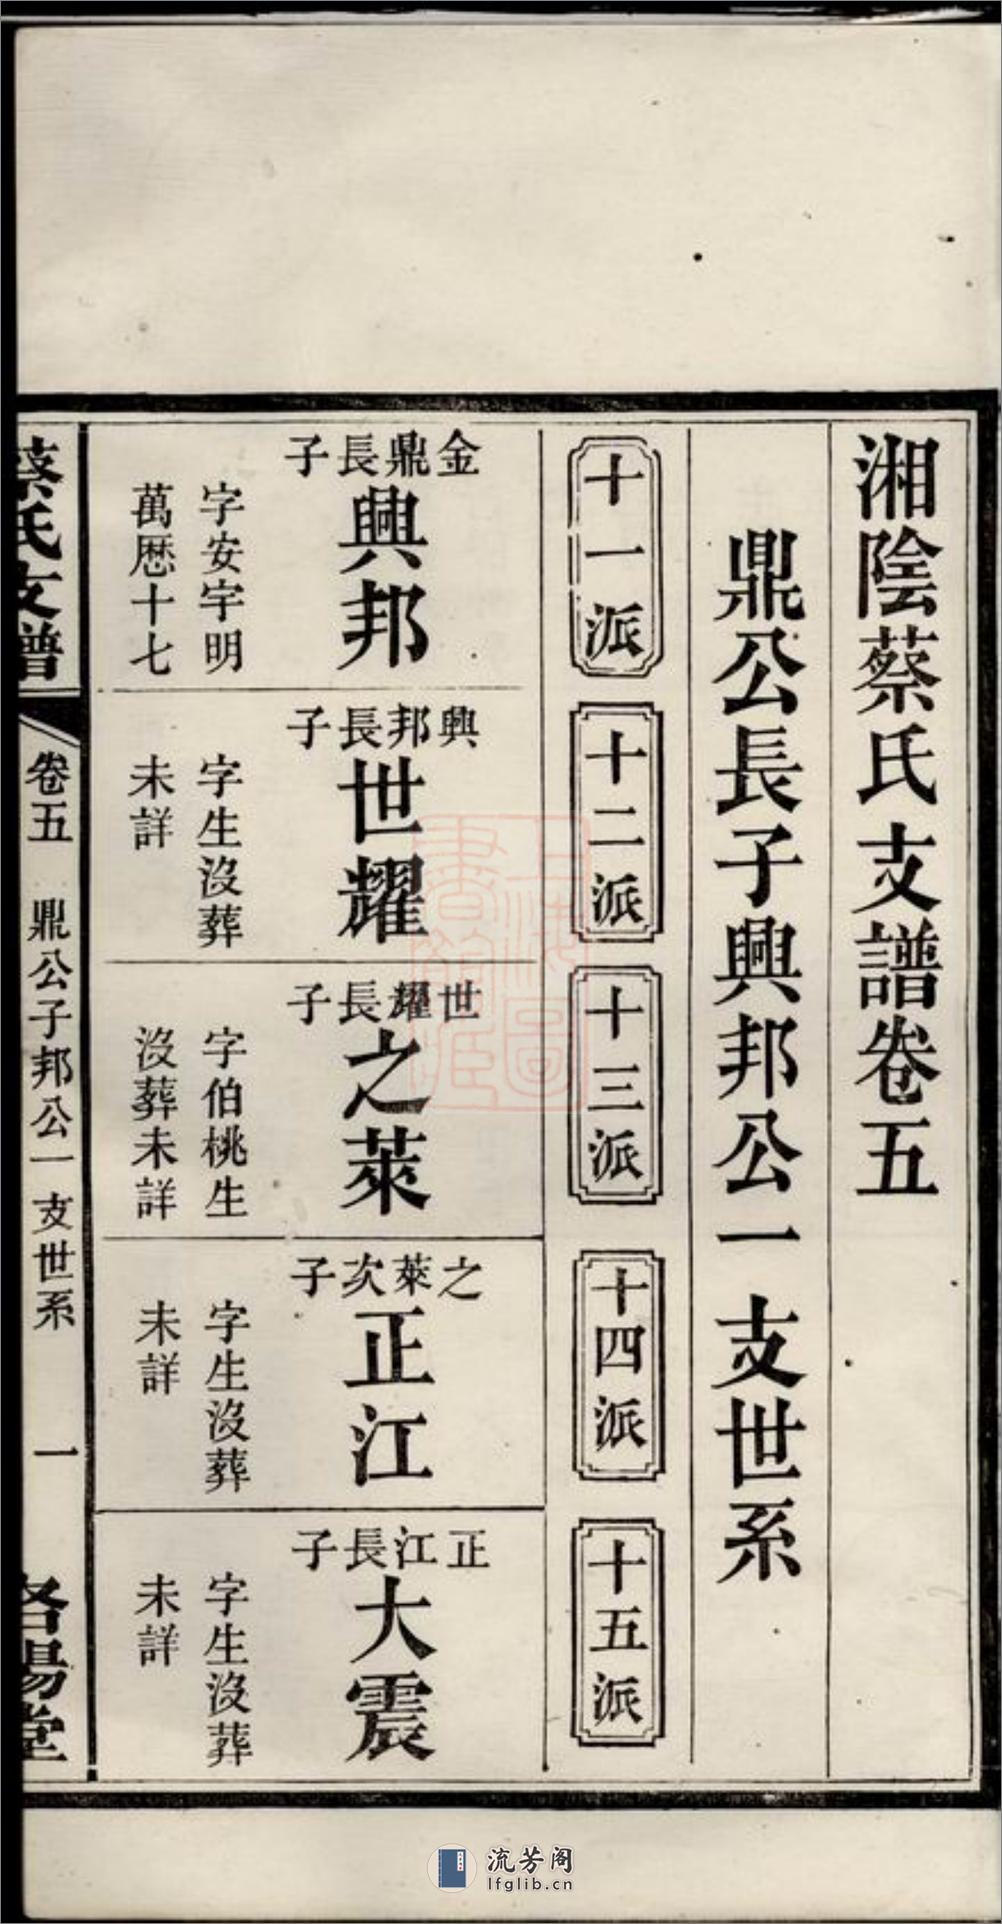 湘陰蔡氏支譜卷五
鼎公長子興邦公一支世系
十一派
十二派
十三派
十四派
十五派
金鼎長子
興邦
字安宇明
萬厯十七
興邦長子
世耀
字生沒葬
未詳
世耀長子
之萊
字伯桃生
沒葬未詳
之萊次子
正江
字生沒葬
未詳
正江長子
大震
字生沒葬
未詳
蔡氏支譜
卷五
鼎公子邦公一支世系
一
洛陽堂
上海圖書館藏
流芳阁
lfglib.cn